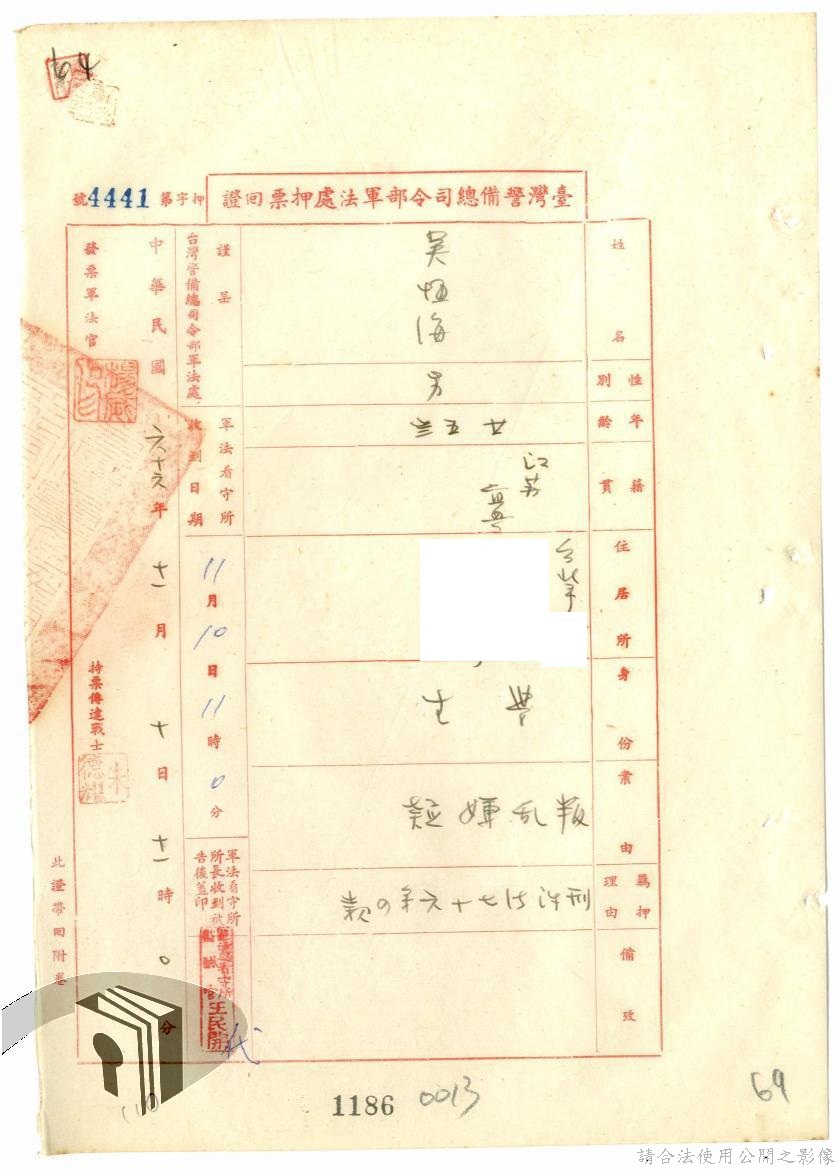 64
臺灣警備總司令部軍法處押票回證
押字第4441號
姓名
吳恒海
性別
男
年齡
廿五
籍貫
江蘇
住居所
台北
身份
學生
案由
叛乱嫌疑
羈押理由
刑訴法七十六條の款
備攷
謹呈
台灣警備總司令部軍法處
軍法看守所收到日期
11月10日11時0分
軍法看守所所長收到被告後蓋印
王民開
代
中華民國六十六年十一月十日十一時0分
發票軍法官
持票傳達戰士
朱德耀
此證帶回附卷
1186
0013
69
請合法使用公開之影像